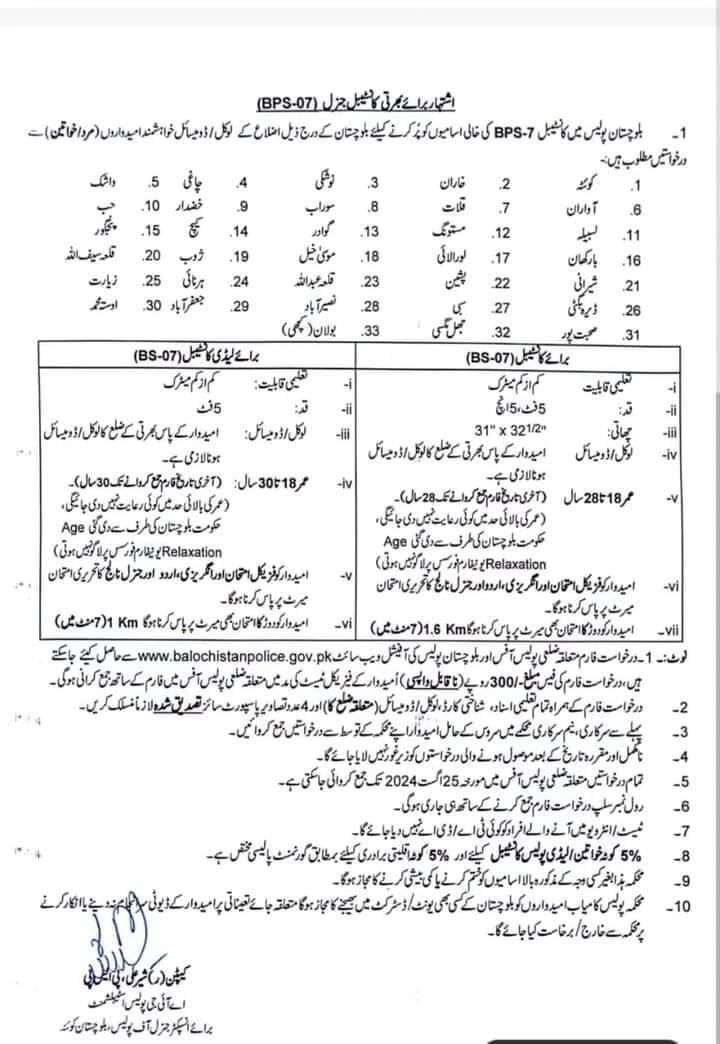 اشتہار برائے بھرتی کانسٹیبل جنرل (BPS-07)
1۔ بلوچستان پولیس میں کانسٹیبل BPS-7 کی خالی اسامیوں کو پُر کرنے کیلئے بلوچستان کے درج ذیل اضلاع کے لوکل/ڈومیسائل خواہشمند امیدواروں (مرد/خواتین) سے
درخواستیں مطلوب ہیں:-
1. کوئٹہ 2. خاران 3. نوشکی 4. چاغی 5. واشک
6. آواران 7. قلات 8. سوراب 9. خضدار 10. حب
11. لسبیلہ 12. مستونگ 13. گوادر 14. کیچ 15. پنجگور
16. بارکھان 17. لورالائی 18. موسیٰ خیل 19. ژوب 20. قلعہ سیف اللہ
21. شیرانی 22. پشین 23. قلعہ عبداللہ 24. ہرنائی 25. زیارت
26. ڈیرہ بگٹی 27. سبی 28. نصیر آباد 29. جعفر آباد 30. اوستہ محمد
31. صحبت پور 32. جھل مگسی 33. بولان (کچھی)
برائے کانسٹیبل (BS-07)
i- تعلیمی قابلیت کم از کم میٹرک
ii- قد: 5فٹ، 5انچ
iii- چھاتی: 31" x 32 1/2"
iv- لوکل/ڈومیسائل امیدوار کے پاس بھرتی کے ضلع کا لوکل/ڈومیسائل
ہونا لازمی ہے۔
v- عمر 18 تا 28 سال (آخری تاریخ فارم جمع کروانے تک 28 سال)۔
(عمر کی بالائی حد میں کوئی رعایت نہیں دی جائیگی،
حکومت بلوچستان کی طرف سے دی گئی Age
Relaxation یونیفارم فورسس پر لاگو نہیں ہوتی)
vi- امیدوار کو فزیکل امتحان اور انگریزی، اردو اور جنرل نالج کا تحریری امتحان
میرٹ پر پاس کرنا ہوگا۔
vii- امیدوار کو دوڑ کا امتحان بھی میرٹ پر پاس کرنا ہوگا 1.6 Km (7 منٹ میں)
برائے لیڈی کانسٹیبل (BS-07)
i- تعلیمی قابلیت: کم از کم میٹرک
ii- قد: 5فٹ
iii- لوکل/ڈومیسائل: امیدوار کے پاس بھرتی کے ضلع کا لوکل/ڈومیسائل
ہونا لازمی ہے۔
iv- عمر 18 تا 30 سال: (آخری تاریخ فارم جمع کروانے تک 30 سال)۔
(عمر کی بالائی حد میں کوئی رعایت نہیں دی جائیگی،
حکومت بلوچستان کی طرف سے دی گئی Age
Relaxation یونیفارم فورسس پر لاگو نہیں ہوتی)
v- امیدوار کو فزیکل امتحان اور انگریزی، اردو اور جنرل نالج کا تحریری امتحان
میرٹ پر پاس کرنا ہوگا۔
vi- امیدوار کو دوڑ کا امتحان بھی میرٹ پر پاس کرنا ہوگا 1 Km (7 منٹ میں)
نوٹ:۔ 1۔ درخواست فارم متعلقہ ضلعی پولیس آفس اور بلوچستان پولیس کی آفیشل ویب سائٹ www.balochistanpolice.gov.pk سے حاصل کیئے جاسکتے
ہیں، درخواست فارم کی فیس مبلغ -/300 روپے (ناقابل واپسی) اُمیدوار کے فیزیکل ٹیسٹ کی مد میں متعلقہ ضلعی پولیس آفس میں فارم کے ساتھ جمع کرانی ہوگی۔
2۔ درخواست فارم کے ہمراہ تمام تعلیمی اسناد، شناختی کارڈ، لوکل/ڈومیسائل (متعلقہ ضلع کا) اور 4 عدد تصاویر پاسپورٹ سائز تصدیق شدہ لازماً منسلک کریں۔
3۔ پہلے سے سرکاری، نیم سرکاری محکمے میں سروس کے حامل امیدوار اپنے محکمہ کے توسط سے درخواستیں جمع کروائیں۔
4۔ نامکمل اور مقررہ تاریخ کے بعد موصول ہونے والی درخواستوں کو زیر غور نہیں لایا جائے گا۔
5۔ تمام درخواستیں متعلقہ ضلعی پولیس آفس میں مورخہ 25 اگست 2024 تک جمع کروائی جاسکتی ہے۔
6۔ رول نمبر سلپ درخواست فارم جمع کرنے کے ساتھ ہی جاری ہوگی۔
7۔ ٹیسٹ/انٹرویو میں آنے والے افراد کو کوئی ٹی اے/ڈی اے نہیں دیا جائے گا۔
8۔ 5% کوٹہ خواتین/لیڈی پولیس کانسٹیبل کیلئے اور 5% کوٹہ اقلیتی برادری کیلئے بمطابق گورنمنٹ پالیسی مختص ہے۔
9۔ محکمہ ہذا بغیر کسی وجہ کے مذکورہ بالا اسامیوں کو ختم کرنے یا کمی بیشی کرنے کا مجاز ہوگا۔
10۔ محکمہ پولیس کامیاب امیدواروں کو بلوچستان کے کسی بھی یونٹ/ڈسٹرکٹ میں بھیجنے کا مجاز ہوگا متعلقہ جائے تعیناتی پر امیدوار کے ڈیوٹی نہ دینے یا انکار کرنے
پر محکمہ سے خارج/برخاست کیا جائے گا۔
کیپٹن (ر) شیر علی، پی ایس پی
اے آئی جی پولیس اسٹیبلشمنٹ
برائے انسپکٹر جنرل آف پولیس، بلوچستان کوئٹہ